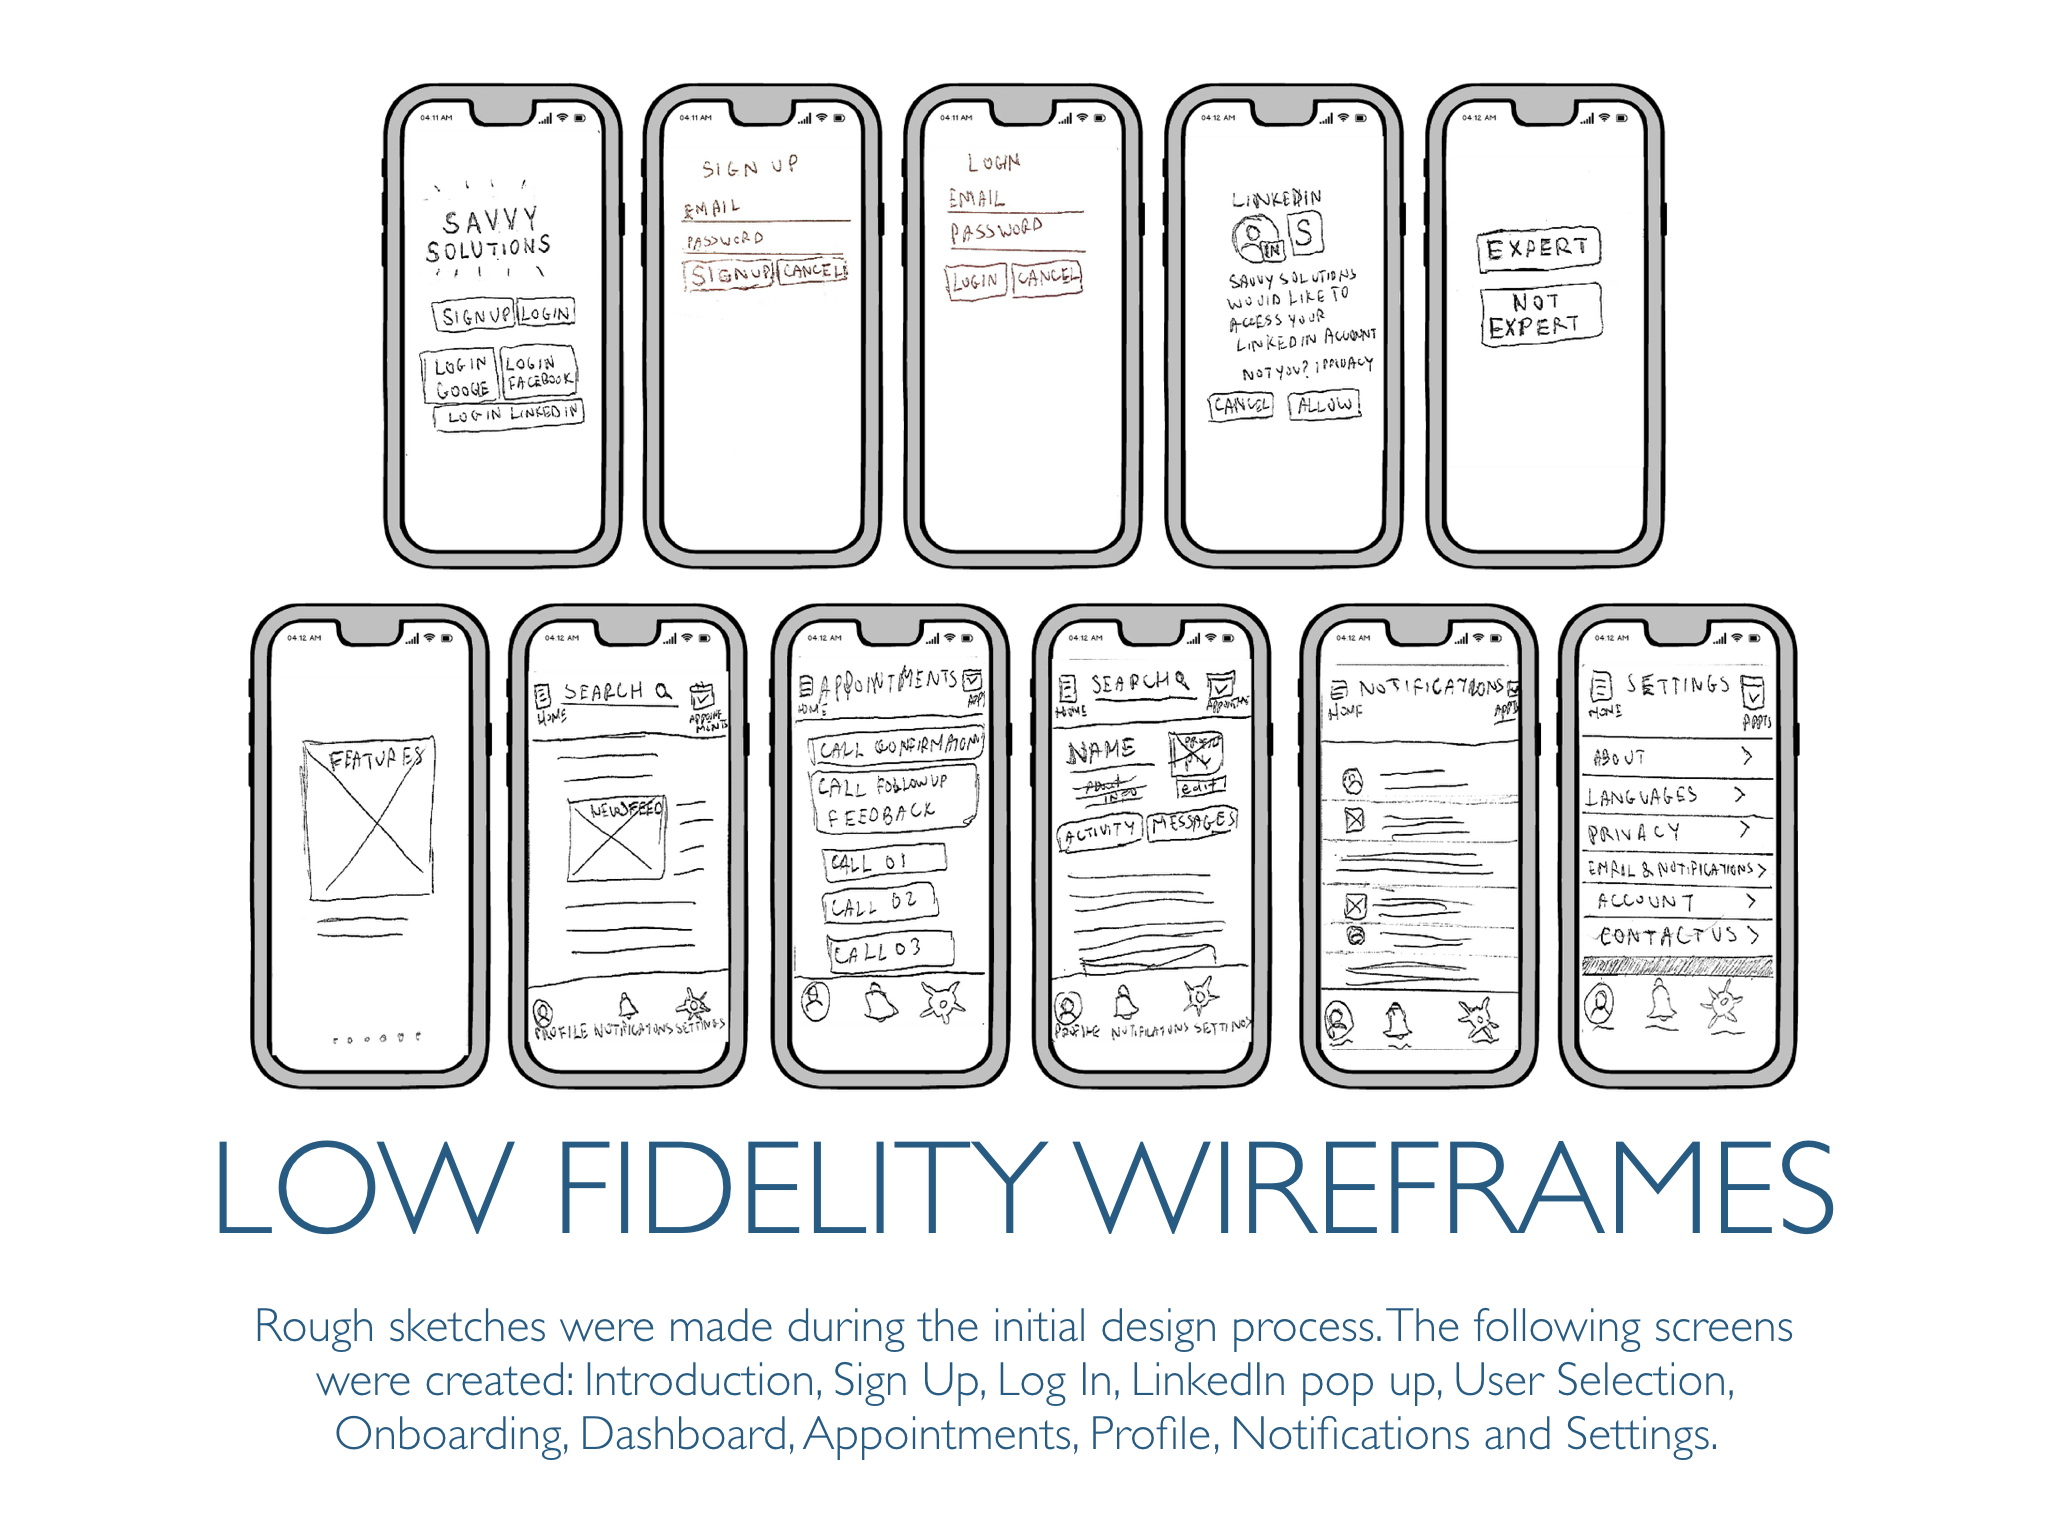 04:11 AM
SAVVY
SOLUTIONS
SIGNUP
LOGIN
LOGIN
GOOGLE
LOGIN
FACEBOOK
LOGIN LINKEDIN
04:11 AM
SIGN UP
EMAIL
PASSWORD
SIGNUP
CANCEL
04:11 AM
LOGIN
EMAIL
PASSWORD
LOGIN
CANCEL
04:12 AM
LINKEDIN
IN
S
SAVVY SOLUTIONS
WOULD LIKE TO
ACCESS YOUR
LINKEDIN ACCOUNT
NOT YOU? | PRIVACY
CANCEL
ALLOW
04:12 AM
EXPERT
NOT
EXPERT
04:12 AM
FEATURES
04:12 AM
SEARCH
HOME
APPOINT
MENTS
NEWSFEED
PROFILE NOTIFICATIONS SETTINGS
04:12 AM
APPOINTMENTS
HOME
APPT
CALL CONFIRMATION
CALL FOLLOWUP
FEEDBACK
CALL 01
CALL 02
CALL 03
04:12 AM
SEARCH
HOME
NAME
ABOUT
INFO
edit
ACTIVITY
MESSAGES
PROFILE NOTIFICATIONS SETTINGS
04:12 AM
NOTIFICATIONS
HOME
APPTS
04:12 AM
SETTINGS
HOME
APPTS
ABOUT >
LANGUAGES >
PRIVACY >
EMAIL & NOTIFICATIONS >
ACCOUNT >
CONTACT US >
LOW FIDELITY WIREFRAMES
Rough sketches were made during the initial design process. The following screens
were created: Introduction, Sign Up, Log In, LinkedIn pop up, User Selection,
Onboarding, Dashboard, Appointments, Profile, Notifications and Settings.